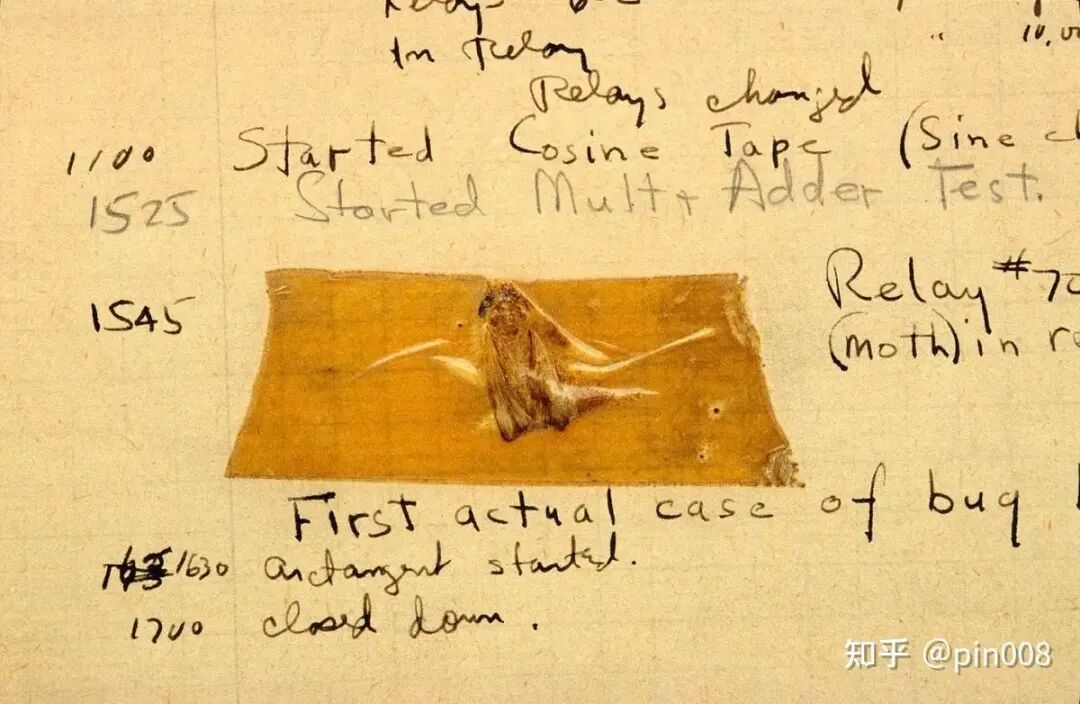 In Relay
10,00
Relays changed
1100 Started Cosine Tape (Sine c
1525 Started Mult+ Adder Test.
1545 Relay #70
(moth) in re
First actual case of bug
1630 arctangent started.
1700 closed down.
知乎 @pin008